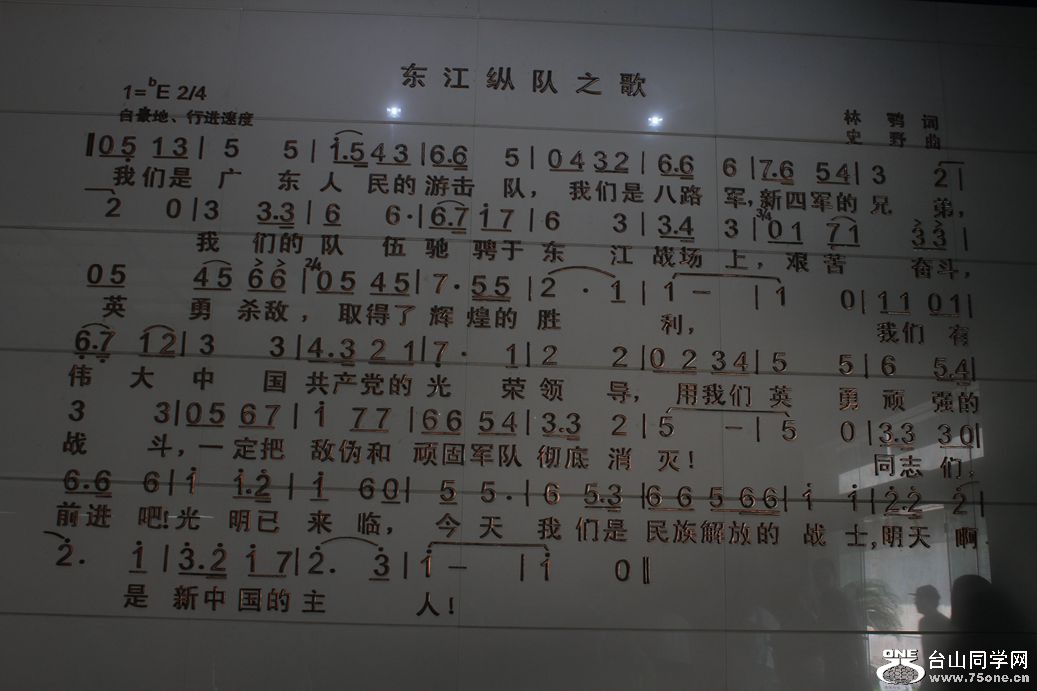 东江纵队之歌
1=ᵇE 2/4
自豪地、行进速度
林鹗词
史野曲
05 13 | 5 5 | i.5 43 | 6.6 5 | 04 32 | 6.6 6 | 7.6 54 | 3 2 |
我们是广东人民的游击队，我们是八路军，新四军的兄弟，
2 0 | 3 3.3 | 6 6· | 6.7 i7 | 6 3 | 3.4 3 | 3/4 01 71 33 |
我们的队伍驰骋于东江战场上，艰苦奋斗，
05 45 66 | 2/4 05 45 | 7· 55 | 2 · 1 | 1 – | 1 0 | 11 01 |
英勇杀敌，取得了辉煌的胜利，我们有
6.7 12 | 3 3 | 4.3 21 | 7· 1 | 2 2 | 02 34 | 5 5 | 6 5.4 |
伟大中国共产党的光荣领导，用我们英勇顽强的
3 3 | 05 67 | i 77 | 66 54 | 3.3 2 | 5 – | 5 0 | 3.3 30 |
战斗，一定把敌伪和顽固军队彻底消灭！同志们，
6.6 6 | i i.2 | i 60 | 5 5· | 6 5.3 | 66 566 | i i | 2.2 2 |
前进吧！光明已来临，今天我们是民族解放的战士，明天啊
2· i | 3.2 i7 | 2· 3 | i – | i 0 ‖
是新中国的主人！
ONE 75 台山同学网
www.75one.cn